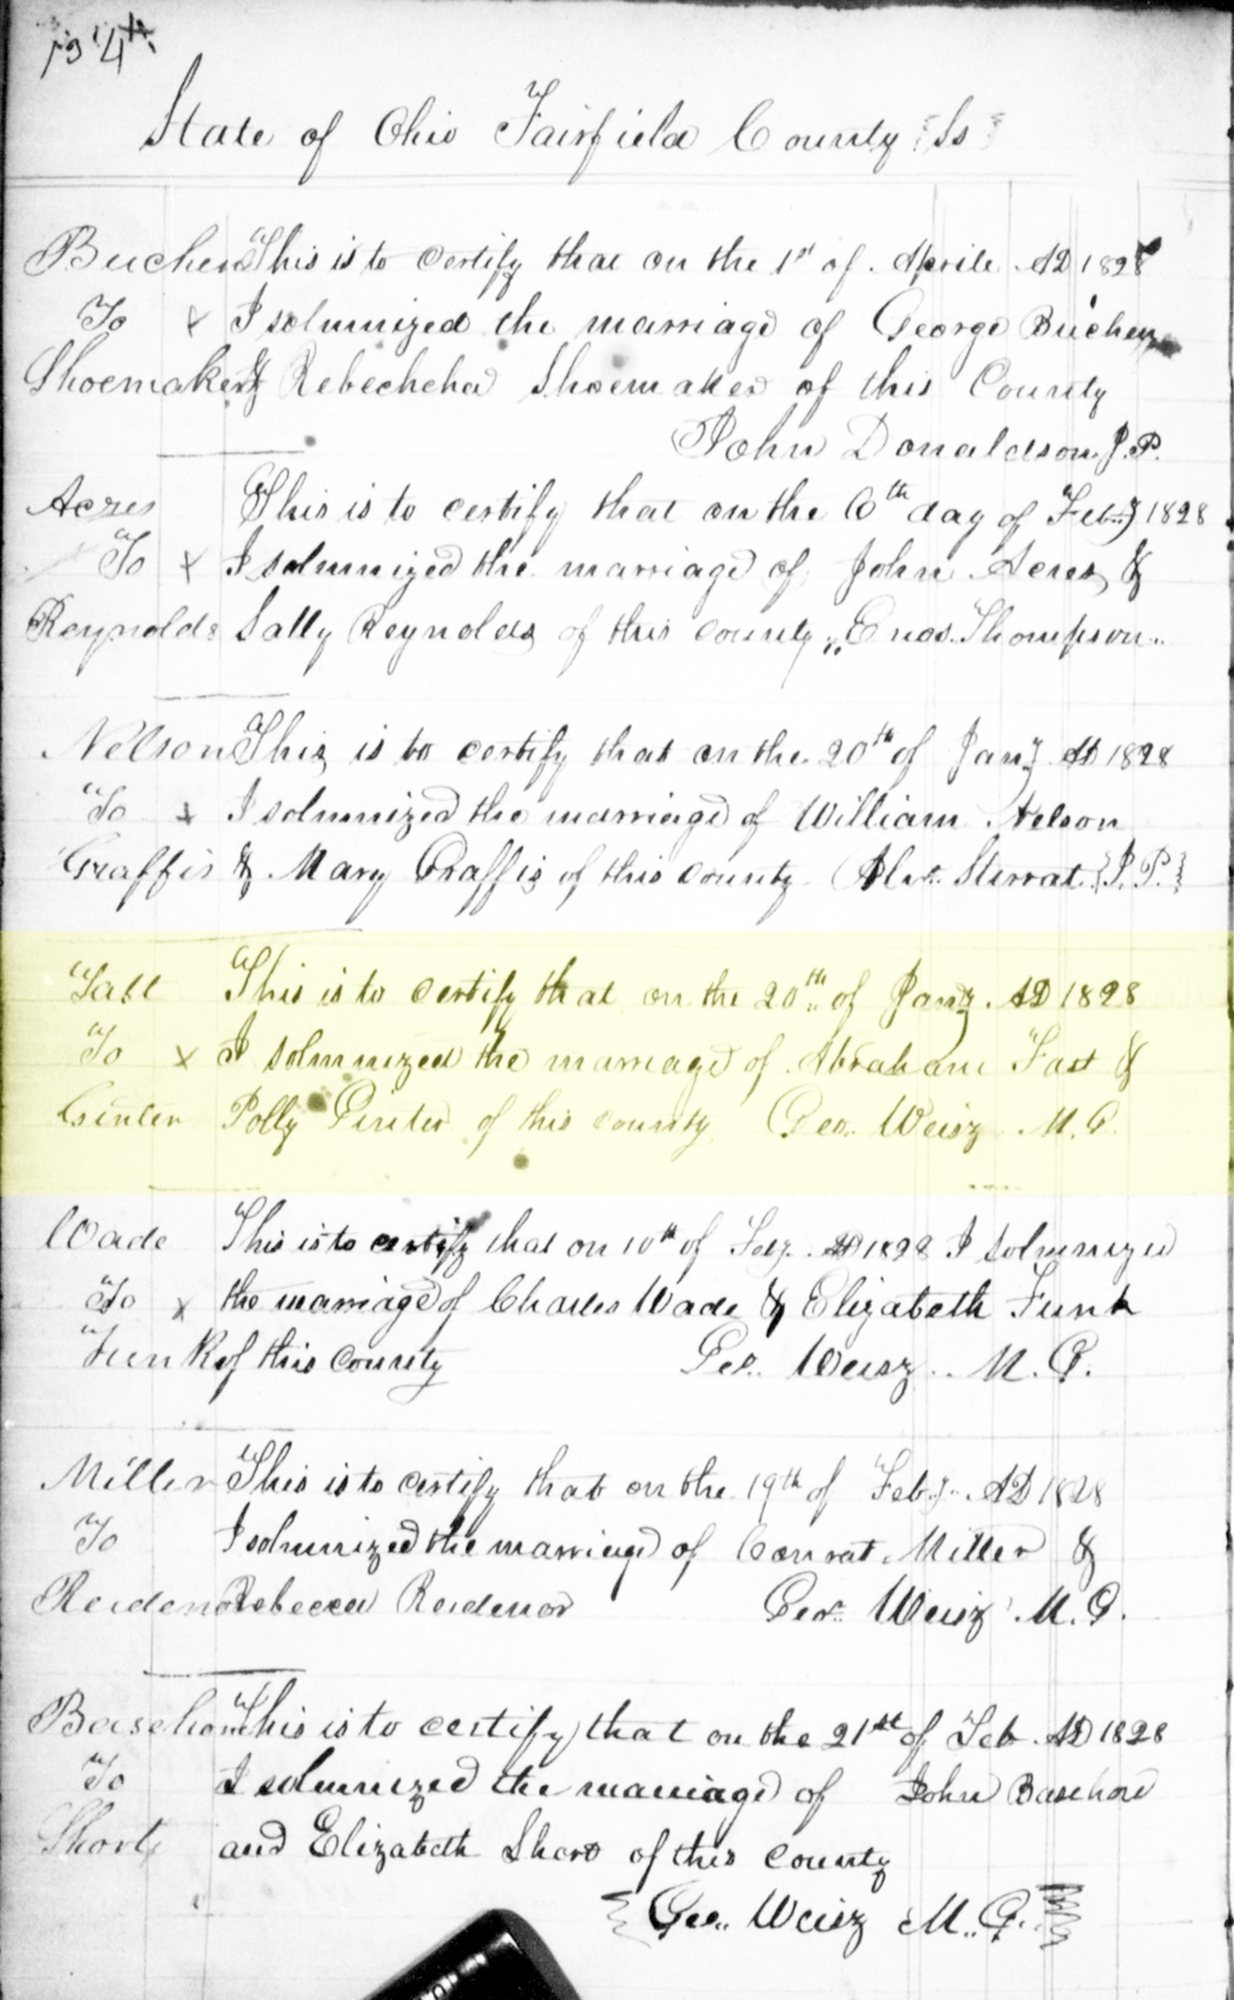 134
State of Ohio Fairfield County Ss
Buchen This is to certify that on the 1st of Aprile AD 1828
To x I solmnized the marriage of George Buchen
Shoemaker & Rebechcha Shoemaker of this County
John Donaldson J.P.
Acres This is to certify that on the 6th day of Feby 1828
To x I solmnized the marriage of John Acres &
Reynolds Sally Reynolds of this county Enos Thompson
Nelson This is to certify that on the 20th of Jany AD 1828
To x I solmnized the marriage of William Nelson
Graffis & Mary Graffis of this county Sterrat {J.P.}
Fast This is to certify that on the 20th of Jany AD 1828
To x I solmnized the marriage of Abraham Fast &
Ginter Polly Ginter of this county Geo. Weisz M.G.
Wade This is to certify that on 10th of Feby AD 1828 I solmnized
To x the marriage of Charles Wade & Elizabeth Funk
Funk of this county Geo. Weisz M.G.
Miller This is to certify that on the 19th of Feby AD 1828
To I solmnized the marriage of Conrat Miller &
Reidenor Rebecca Reidenor Geo. Weisz M.G.
Basehore This is to certify that on the 21st of Feb AD 1828
To I solmnized the marriage of John Basehore
Short and Elizabeth Short of this county
Geo. Weisz M.G.